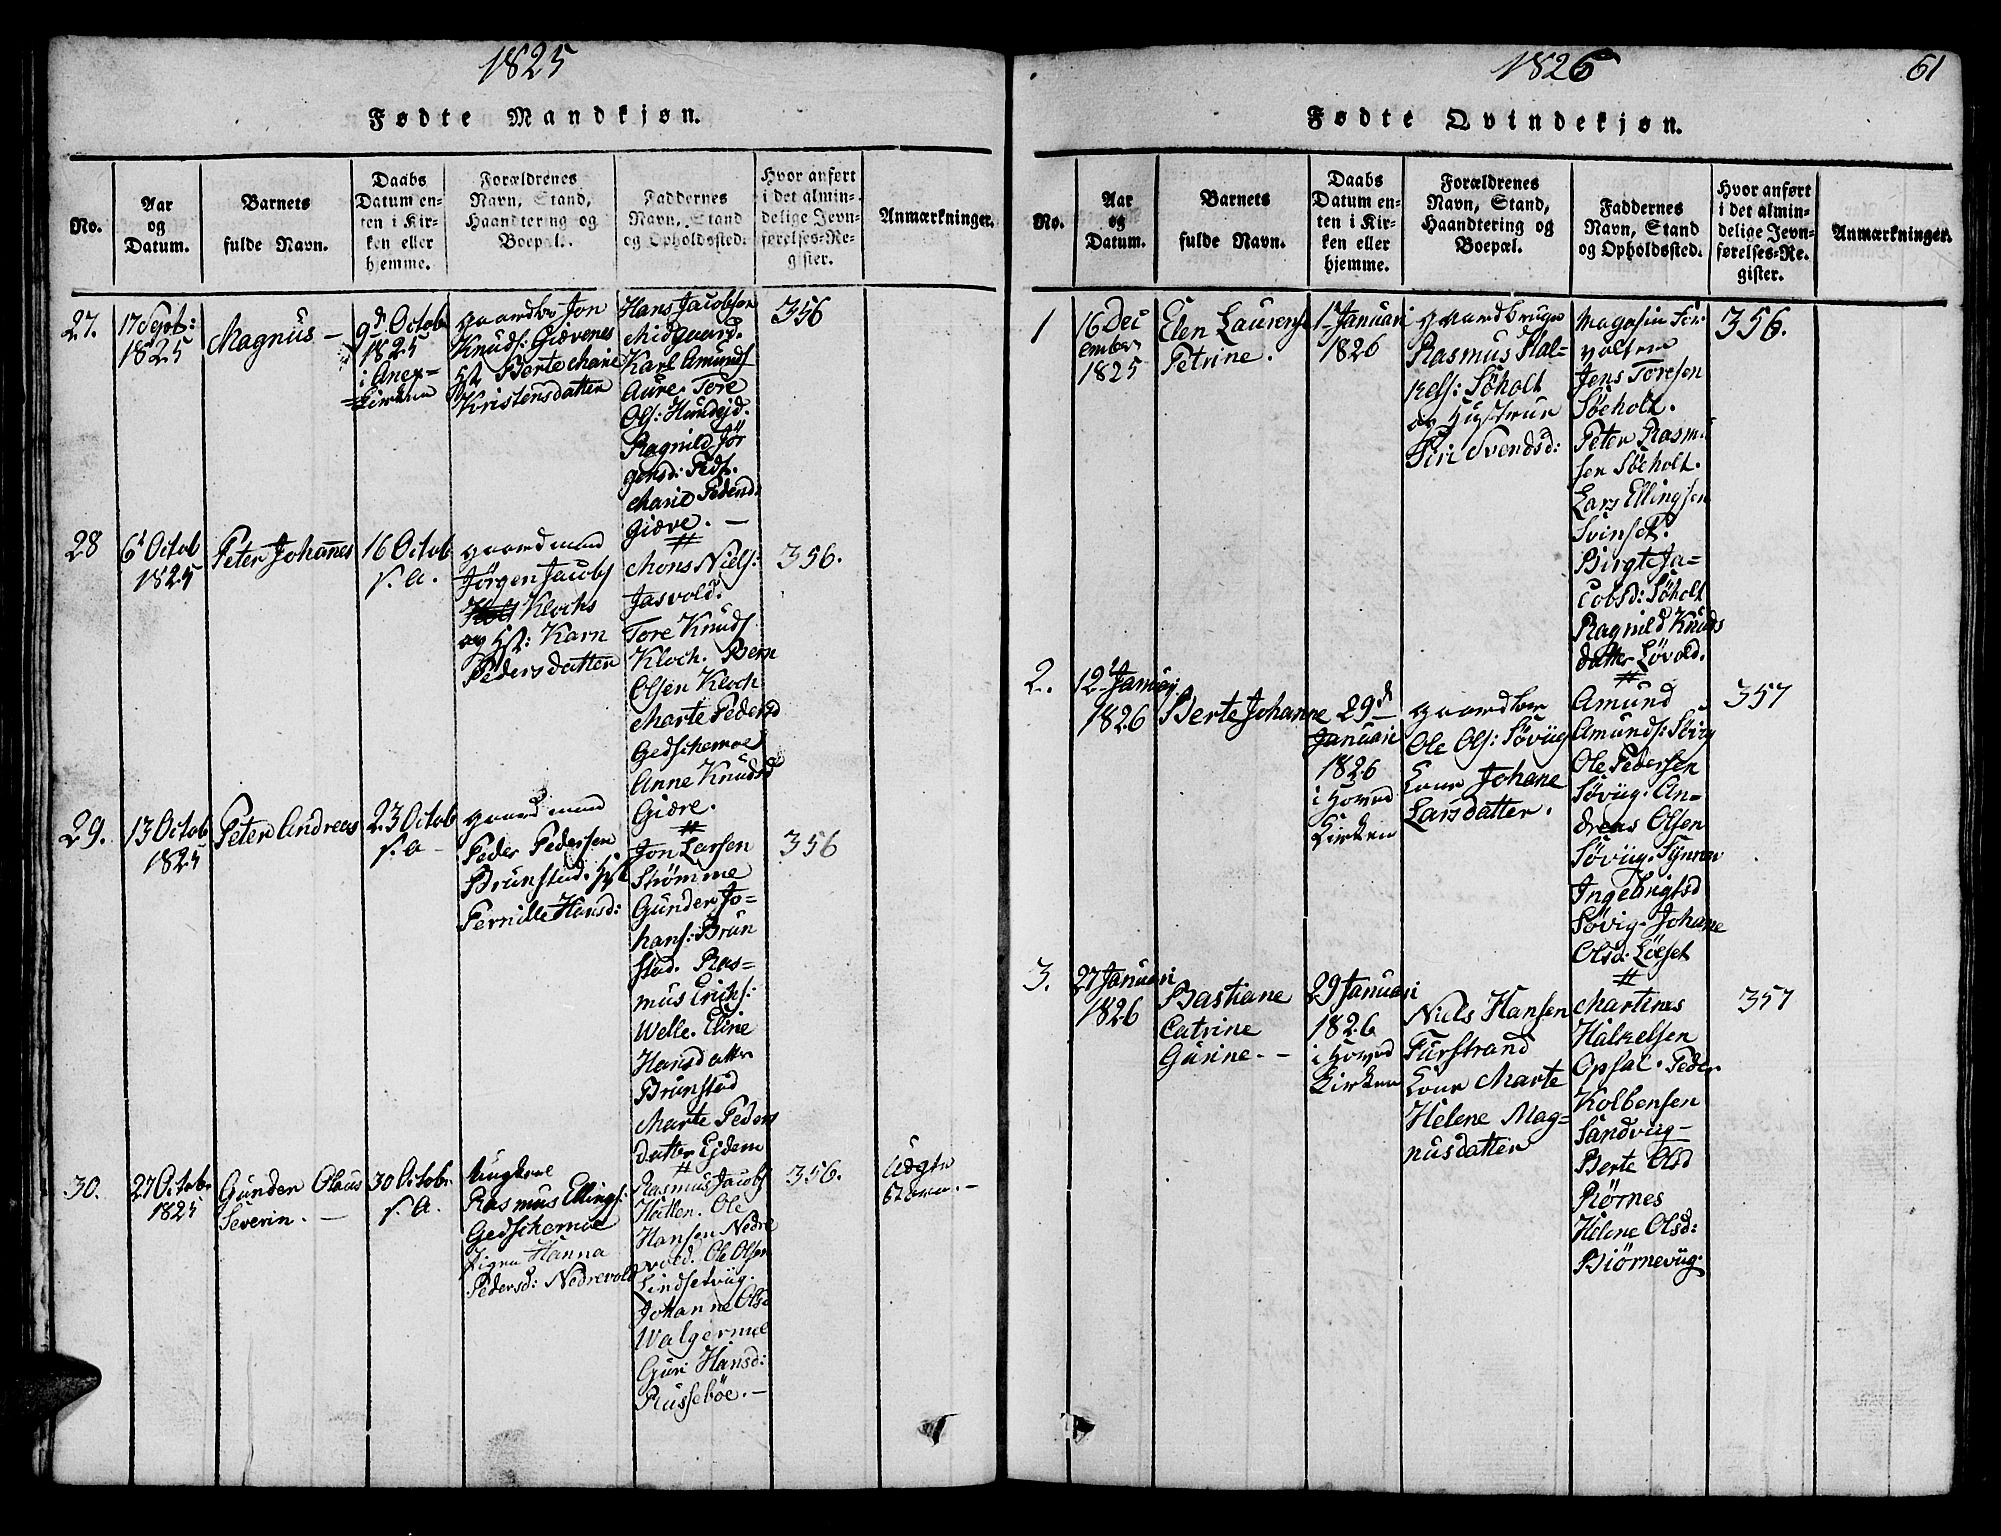 1825
Fødte Mandkjøn.
No.
Aar
og
Datum.
Barnets
fulde Navn.
Daabs
Datum en-
ten i Kir-
ken eller
hjemme.
Forældrenes
Navn, Stand,
Haandtering og
Boepæl.
Faddernes
Navn, Stand
og Opholdssted.
Hvor anført
i det almin-
delige Jevn-
førelses-Re-
gister.
Anmærkninger.
27.
17 Sept:
1825
Magnus —
9d Octob
1825
i Anex-
Kirken
Gaardbr Jon
Knuds: Giævenes
Hst Berte Marie
Kristensdatter
Hans Jacobsen
Midgaard.
Karl Amunds
Aure. Tore
Ols: Hundejd.
Ragnild Jør
gensd:
Marie Pedersd:
Giære. —
356
28
6d Octob
1825
Peter Johannes
16 Octob
s. a.
gaardmand
Jørgen Jacobs
Klochs
og Hst: Karn
Pedersdatter
Mons Niels:
Jasvold.
Tore Knuds
Kloch. Bern
Olsen Kloch
Marte Pedersd
Gedschemoe
Anne Knudsd
Giære.
356.
29.
13 Octob
1825
Peter Andreas
23 Octob
s. a —
gaardmand
Peder Pedersen
Brunstad. Hst
Pernille Hansd:
Jon Larsen
Strømme
Gunder Jo-
hans: Brun
stad. Ras-
mus Erichs:
Welle. Eline
Hansdatter
Brunstad
Marte Peders
datter Ejdem
356
30.
27 Octobr
1825
Gunder Olaus
Severin. —
30 Octobr
s. a.
Ungkarl
Rasmus Ellings:
Gedschemoe
Pigen Hanna
Pedersd: Nedrevold
Rasmus Jacobs
Hatten. Ole
Hansen Nedre
vold. Ole Olsen
Lindsetvüg.
Johanne Olsd
Walgermoe
Guri Hansd:
Russebøe. —
356.
Uægte
Barn. —
1826
61
Fødte Qvindekjøn.
No.
Aar
og
Datum.
Barnets
fulde Navn.
Daabs
Datum en-
ten i Kir-
ken eller
hjemme.
Forældrenes
Navn, Stand,
Haandtering og
Boepæl.
Faddernes
Navn, Stand
og Opholdssted.
Hvor anført
i det almin-
delige Jevn-
førelses-Re-
gister.
Anmærkninger.
1
16 Dec
ember
1825
Elen Laurense
Petrine.
1 Januari
1826
gaardbruger
Rasmus Hal-
kels: Søholt
og Hustrue
Siri Svendsd:
Magasin For
valter
Jens Toresen
Søeholt.
Peter Rasmu
sen Søeholt.
Lars Ellingsen
Svinset.
Birgte Ja-
cobsd: Søholt
Ragnild Knuds
datter Løvold.
356.
2.
12 Januari
1826
Berte Johanne
29d
Januarii
1826
i Hoved
Kirken
gaardbr
Ole Ols: Søvüg
Kone Johane
Larsdatter.
Amund
Amunds: Søvig
Ole Pedersen
Søvüg. An-
dreas Olsen
Søvüg. Synnev
Ingebrigtsd
Søvig. Johane
Olsd: Løeset
357
3.
27 Januari
1826
Bastiane
Catrine
Gurine. —
29 Januari
1826
i Hoved
Kirken
Niels Hansen
Furstrand
Kone Marte
Helene Mag-
nusdatter
Martines
Halkelsen
Opsal. Peder
Kolbensen
Sandvug —
Berte Olsd
Rørnes
Helene Olsd:
Biørnevüg
357